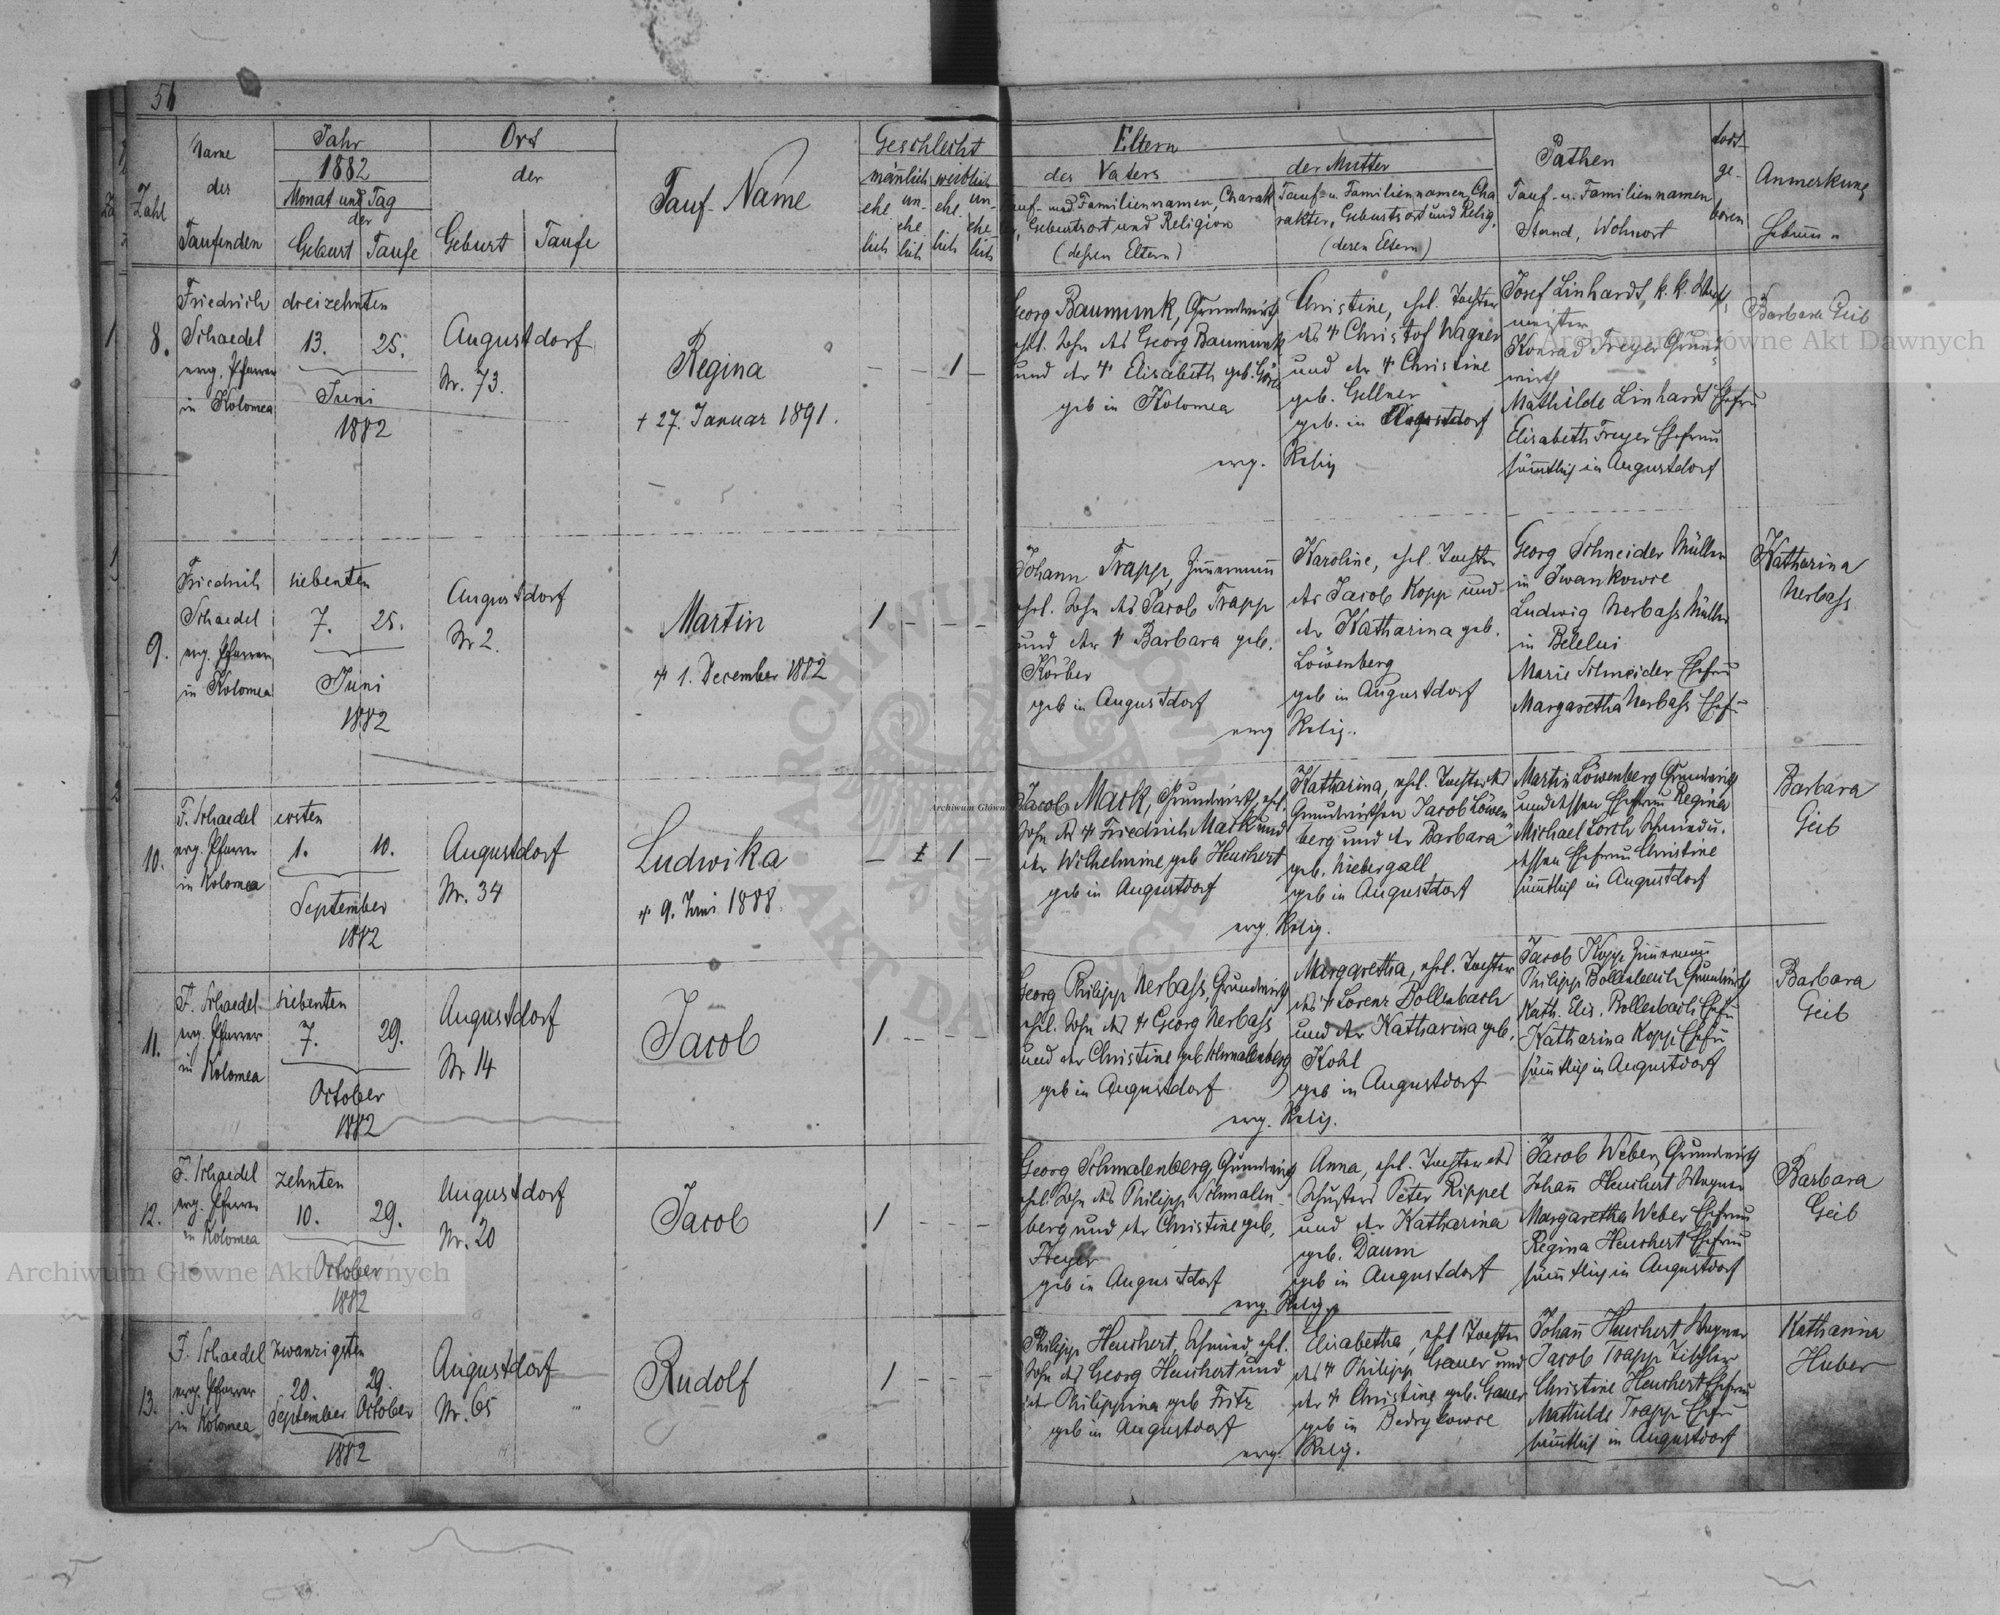 56
Name
des
Taufenden
Zahl
Jahr
1882
Monat und Tag
der
Geburt Taufe
Ort
der
Geburt Taufe
Tauf-Name
Geschlecht
männlich weiblich
ehe- un- ehe- un-
lich ehe- lich ehe-
lich lich
Eltern
des Vaters
Tauf- und Familiennamen, Charak
ter, Geburtsort und Religion
(dessen Eltern)
der Mutter
Tauf- u. Familiennamen, Cha
rakter, Geburtsort und Relig.
(deren Eltern)
Pathen
Tauf- u. Familiennamen
Stand, Wohnort
todt-
ge-
boren
Anmerkung
8.
Friedrich
Schaedel
evg. Pfarrer
in Kolomea
dreizehnten
13. 25.
Juni
1882
Augustdorf
Nr. 73.
Regina
+ 27. Januar 1891.
— — 1 —
Georg Baumunk, Grundwirth
ehl. Sohn des Georg Baumunk
und der + Elisabeth geb.
geb in Kolomea
Christine, ehl. Tochter
des + Christof Wagner
und der + Christine
geb. Gellner
geb. in Augustdorf
evg. Relig
Josef Linhardt, k. k.
meister
Konrad Freyer Grund-
wirth
Mathilde Linhardt Ehefrau
Elisabeth Freyer Ehefrau
sämtlich in Augustdorf
Barbara Geib
9.
Friedrich
Schaedel
evg. Pfarrer
in Kolomea
siebenten
7. 25.
Juni
1882
Augustdorf
Nr 2.
Martin
+ 1. December 1882
1 — — —
Johann Trapp, Zimmermann
ehel. Sohn des Jacob Trapp
und der + Barbara geb.
Körber
geb in Augustdorf
Karoline, ehl. Tochter
des Jacob Kopp und
der Katharina geb.
Löwenberg
geb in Augustdorf
evg Relig.
Georg Schneider Müller
in Iwankowce
Ludwig Nerbass Müller
in Belelui
Marie Schneider Ehefrau
Margaretha Nerbass Ehefr
Katharina
Nerbass
10.
F. Schaedel
evg. Pfarrer
in Kolomea
ersten
1. 10.
September
1882
Augustdorf
Nr. 34
Ludwika
+ 9. Juni 1888.
— 1 —
Jacob Mark, Grundwirth, ehl.
Sohn des + Friedrich Mark und
der Wilhelmine geb Heuchert
geb in Augustdorf
Katharina, ehl. Tochter des
Grundwirthen Jacob Löwen
berg und der Barbara
geb. Niebergall
geb in Augustdorf
evg. Relig.
Martin Löwenberg Grundwirth
und dessen Ehefrau Regina
Michael Lorch Schmied u.
dessen Ehefrau Christine
sämtlich in Augustdorf
Barbara
Geib
11.
F. Schaedel
evg. Pfarrer
in Kolomea
siebenten
7. 29.
October
1882
Augustdorf
Nr 14
Jacob
1 — — —
Georg Philipp Nerbass, Grundwirth
ehl. Sohn des + Georg Nerbass
und der Christine geb Schmalenberg
geb in Augustdorf
Margaretha, ehl. Tochter
des + Lorenz Bollenbach
und der Katharina geb.
Kohl
geb in Augustdorf
evg. Relig.
Jacob Kopp Zimmermann
Philipp Bollenbach Grundwirth
Kath. Elis. Bollenbach Ehefr
Katharina Kopp Ehefr
sämtlich in Augustdorf
Barbara
Geib
12.
F. Schaedel
evg. Pfarrer
in Kolomea
zehnten
10. 29.
October
1882
Augustdorf
Nr. 20
Jacob
1 — — —
Georg Schmalenberg, Grundwirth
ehl. Sohn des Philipp Schmalen-
berg und der Christine geb.
Freyer
geb in Augustdorf
Anna, ehl. Tochter des
Schusters Peter Rippel
und der Katharina
geb. Daum
geb in Augustdorf
evg. Relig.
Jacob Weber, Grundwirth
Johann Heuchert Wagner
Margaretha Weber Ehefrau
Regina Heuchert Ehefrau
sämtlich in Augustdorf
Barbara
Geib
13.
F. Schaedel
evg. Pfarrer
in Kolomea
zwanzigsten
20. 29.
September October
1882
Augustdorf
Nr. 65
Rudolf
1 — — —
Philipp Heuchert, Schmied, ehl.
Sohn des Georg Heuchert und
der Philippina geb Fritz
geb in Augustdorf
Elisabetha, ehl Tochter
des + Philipp Gauer und
der + Christine geb. Gauer
geb in Bedrykowce
evg. Relg.
Johann Heuchert Wagner
Jacob Trapp Tischler
Christine Heuchert Ehefrau
Mathilde Trapp Ehefr
sämtlich in Augustdorf
Katharina
Huber
Archiwum Główne Akt Dawnych
Archiwum Główne Akt Dawnych